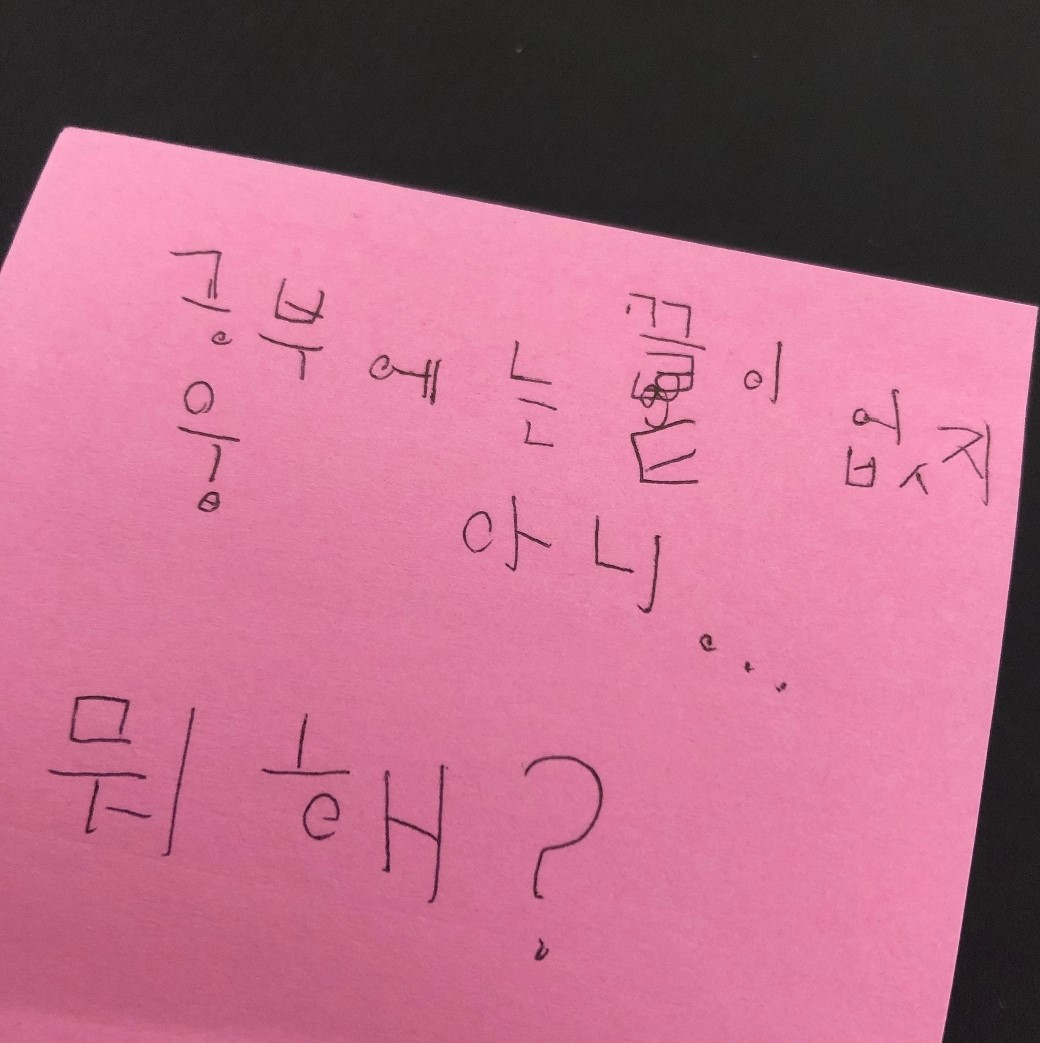 공부에는 끝이 없지
웅 아니...
뭐 해?